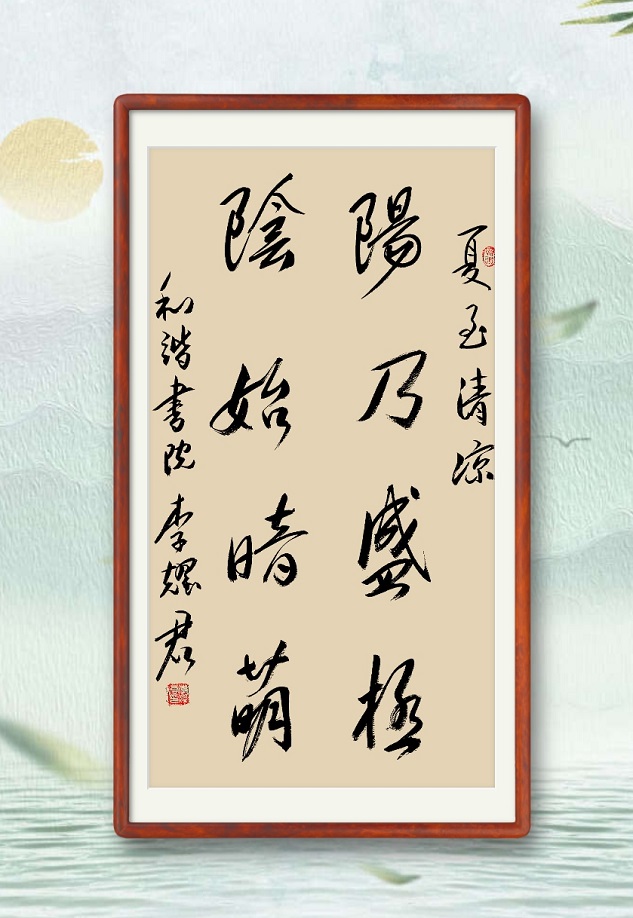 夏至清凉
陽乃盛極
陰始暗萌
和谐書院 李耀君